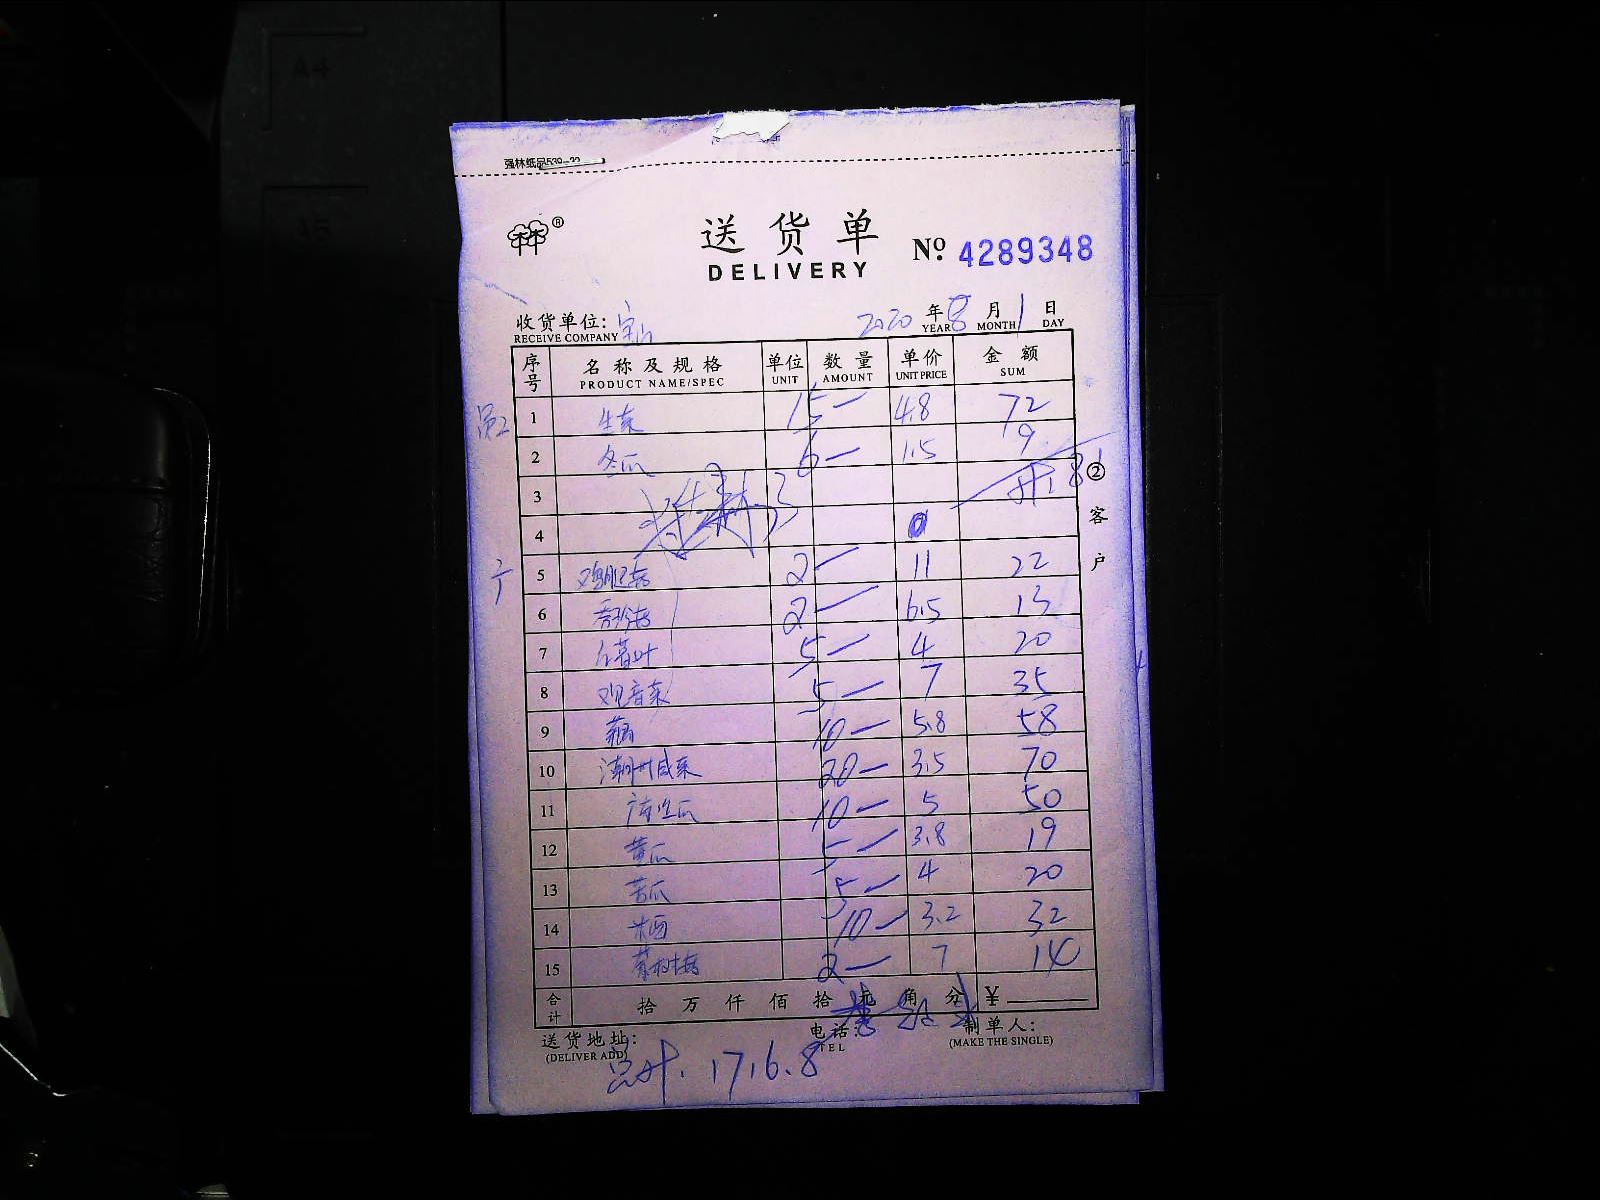 强林纸品539-32
®
送货单
DELIVERY
№ 4289348
收货单位: 宝山 2020 年 8 月 1 日
RECEIVE COMPANY YEAR MONTH DAY
序号 名称及规格 单位 数量 单价 金额
PRODUCT NAME/SPEC UNIT AMOUNT UNIT PRICE SUM
1 生菜 15— 4.8 72
2 冬瓜 6— 1.5 9
3 81
4
5 2— 11 22
6 2— 6.5 13
7 5— 4 20
8 观音菜 5— 7 35
9 10— 5.8 58
10 潮州咸菜 20— 3.5 70
11 10— 5 50
12 黄瓜 5— 3.8 19
13 苦瓜 5— 4 20
14 10— 3.2 32
15 茶树菇 2— 7 14
合计 拾 万 仟 佰 拾 元 角 分 ¥
②客户
送货地址: 电话: 制单人:
(DELIVER ADD) TEL (MAKE THE SINGLE)
总计. 1716.8